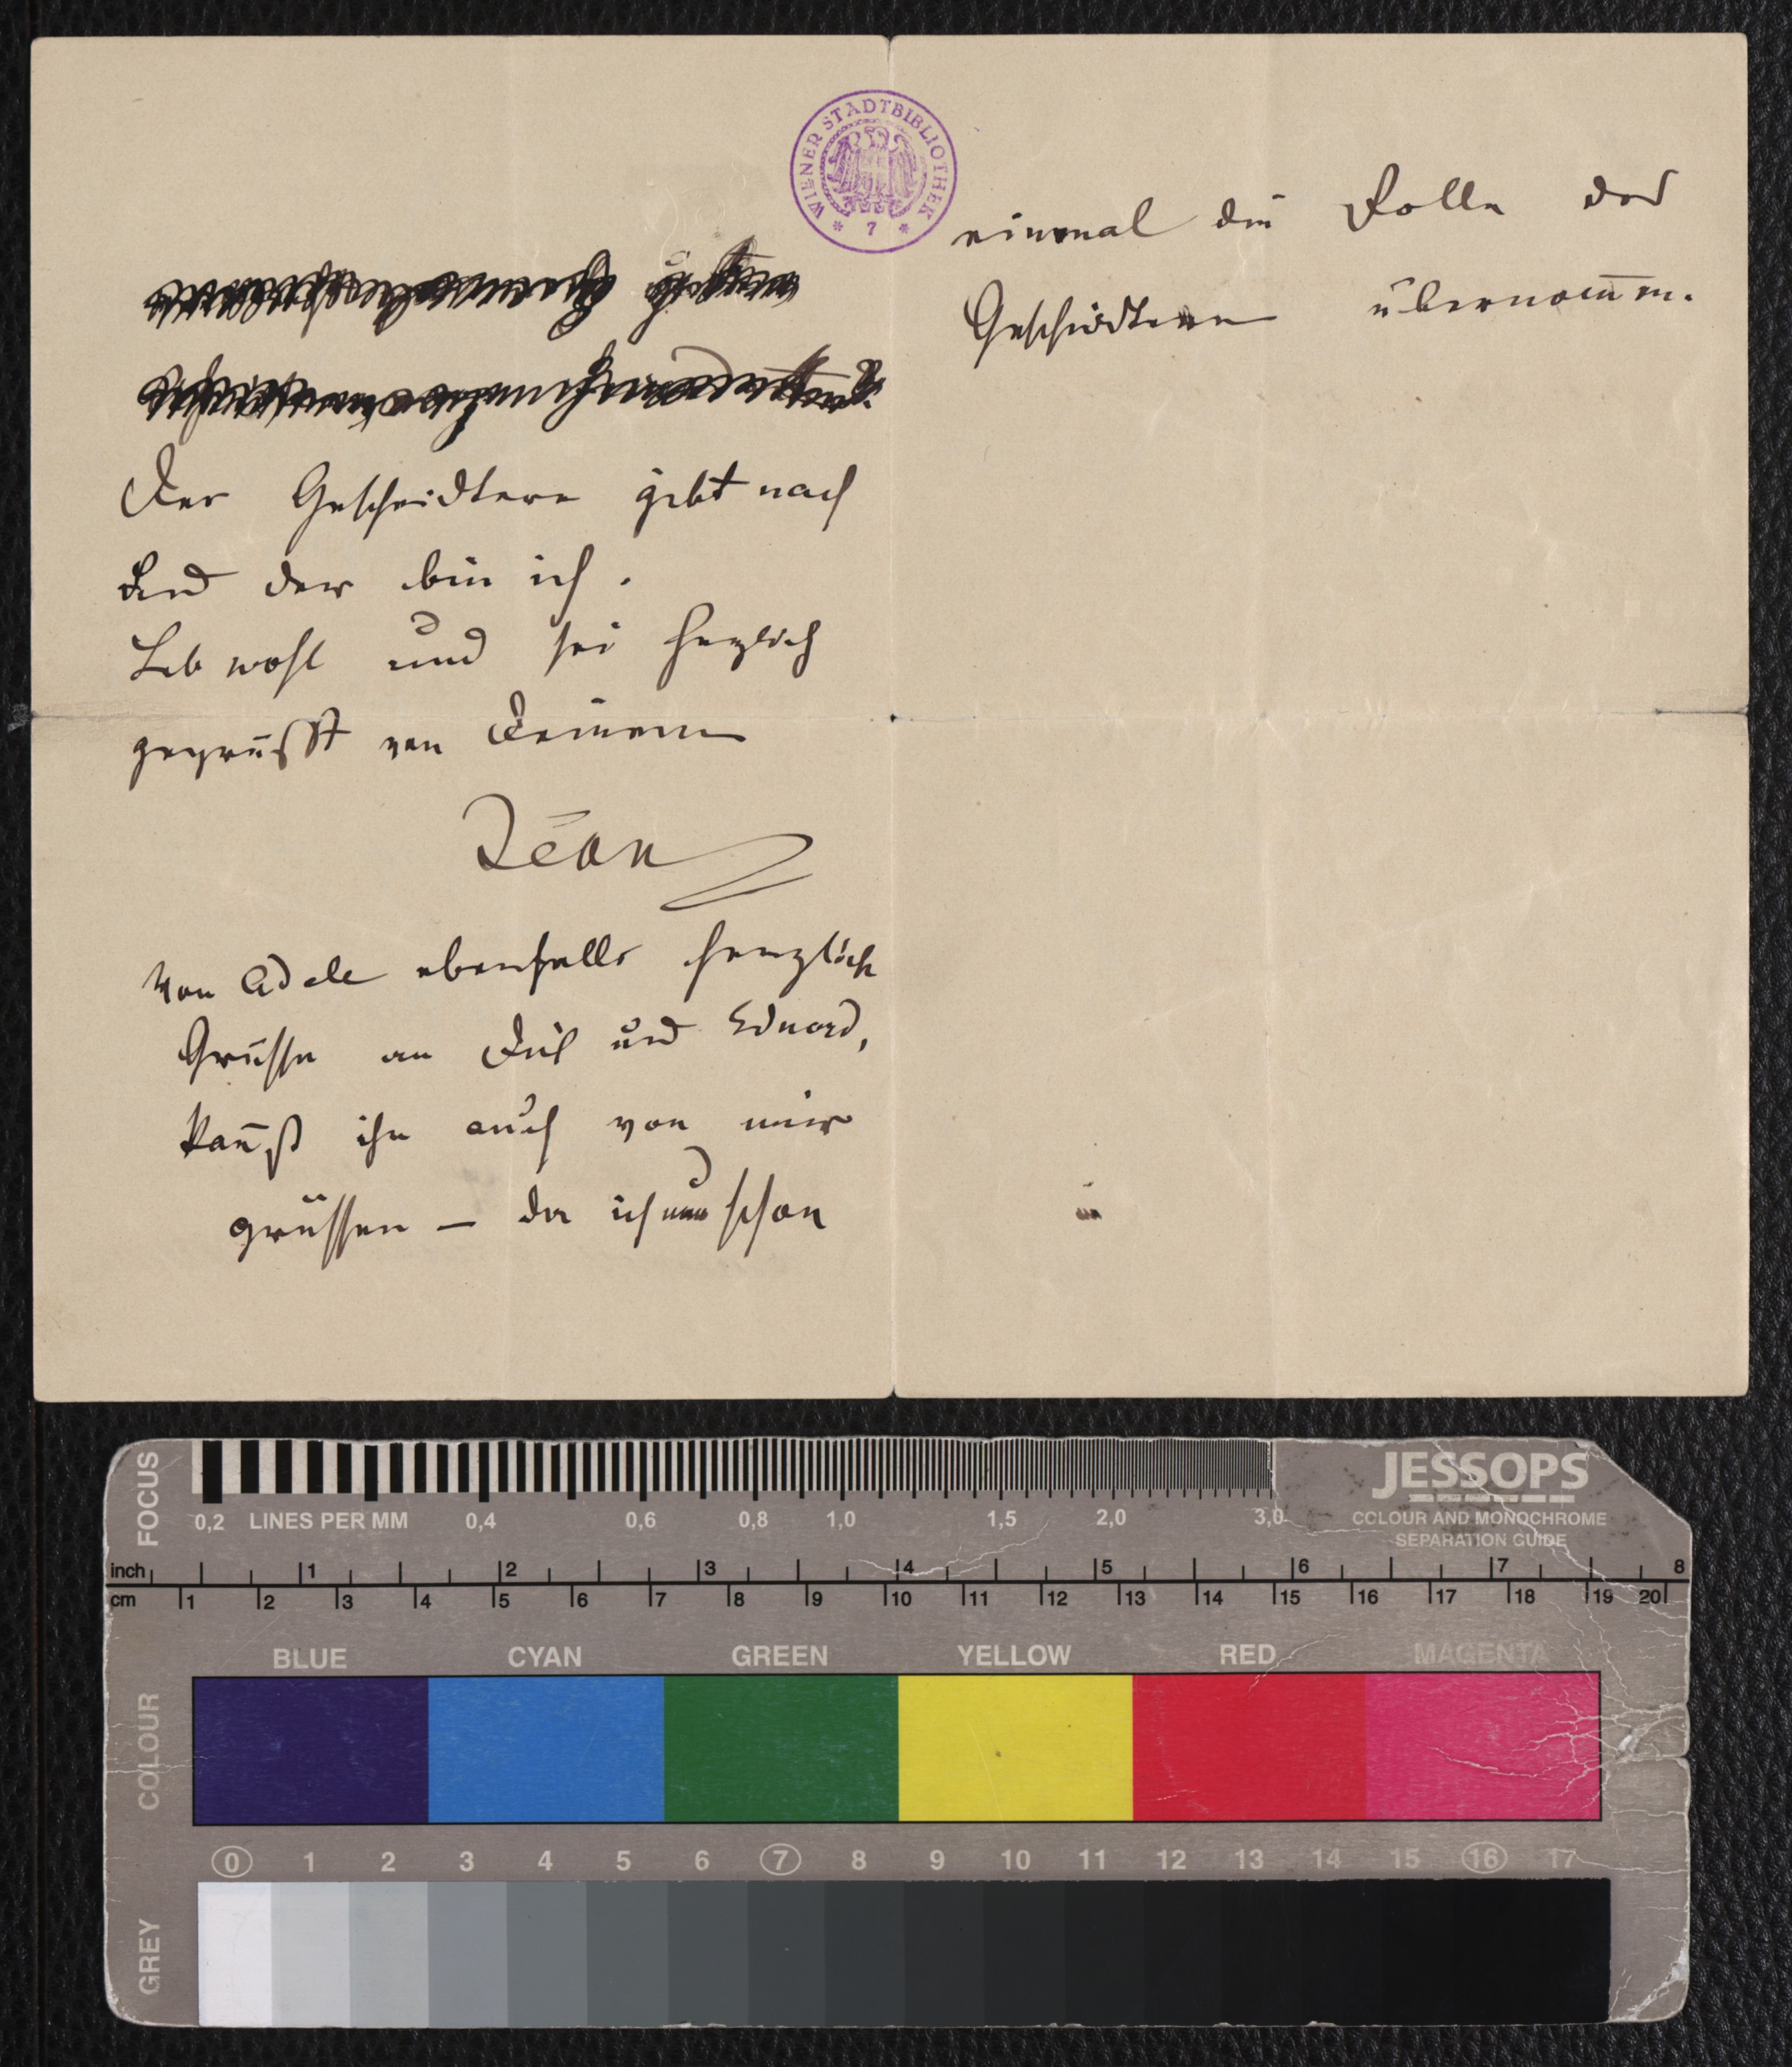 WIENER STADTBIBLIOTHEK
* 7 *
Der Gescheidtere gibt nach
Und der bin ich.
Leb wohl und sei herzlich
gegrüsst von Deinem
Jean
Von Adele ebenfalls herzlich
Grüsse an Dich und Eduard,
kan̄ßt ihn auch von mir
grüssen – da ich nun schon
einmal die Rolle des
Gescheidteren übernom̄en.
FOCUS
0,2 LINES PER MM 0,4 0,6 0,8 1,0 1,5 2,0 3,0
JESSOPS
COLOUR AND MONOCHROME
SEPARATION GUIDE
inch 1 2 3 4 5 6 7 8
cm 1 2 3 4 5 6 7 8 9 10 11 12 13 14 15 16 17 18 19 20
COLOUR
BLUE CYAN GREEN YELLOW RED MAGENTA
0 1 2 3 4 5 6 7 8 9 10 11 12 13 14 15 16 17
GREY